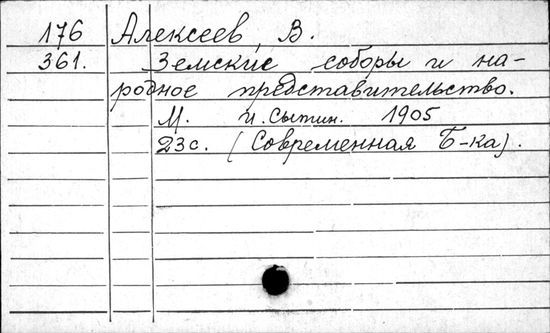 176 Алексеев, В.
361. Земские соборы и на-
родное представительство.
М. И. Сытин. 1905
23с. (Современная Б-ка).